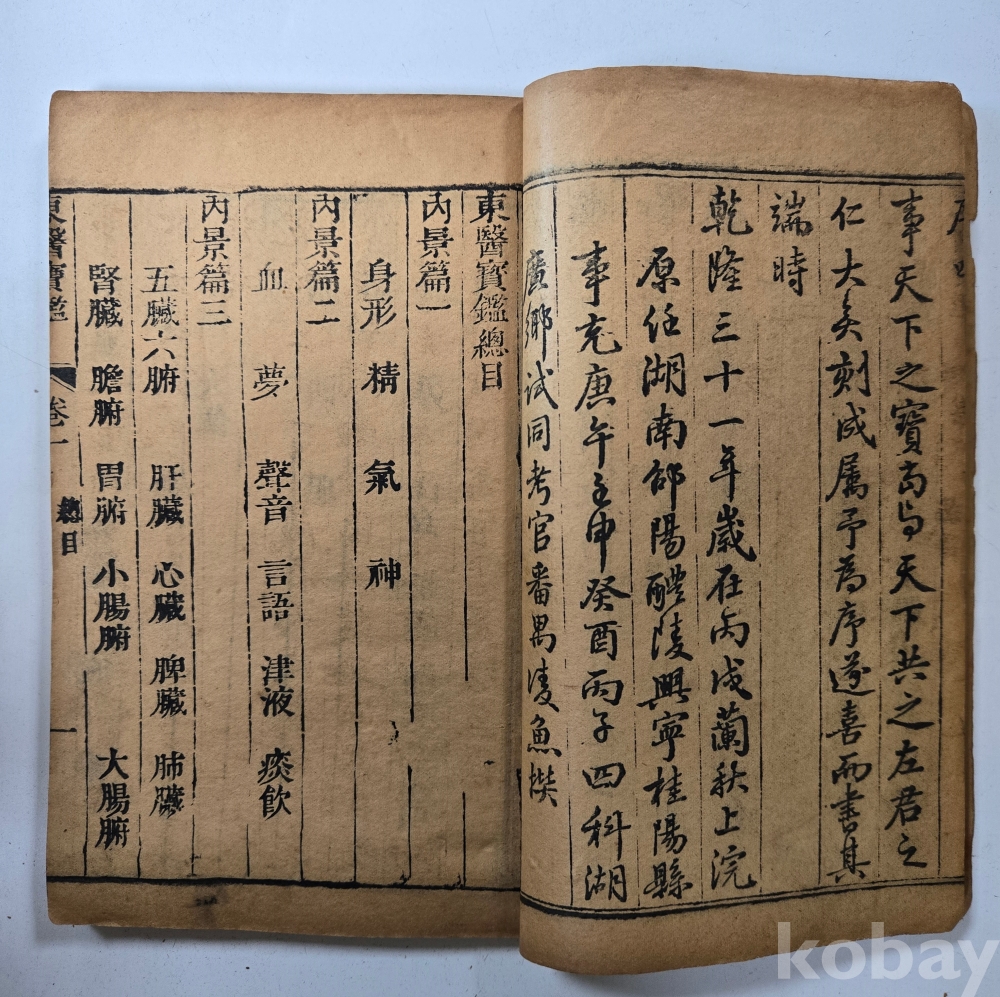 事天下之寶當與天下共之左君之
仁大矣刻成属予為序遂喜而書其
端時
乾隆三十一年歲在丙戌蘭秋上浣
原任湖南邵陽醴陵興寧桂陽縣
事充庚午壬申癸酉丙子四科湖
廣鄉試同考官番禺凌魚撰
東醫寶鑑總目
內景篇一
身形 精 氣 神
內景篇二
血 夢 聲音 言語 津液 痰飲
內景篇三
五臟六腑 肝臟 心臟 脾臟 肺臟
腎臟 膽腑 胃腑 小腸腑 大腸腑
東醫寶鑑 卷一 總目 一
kobay